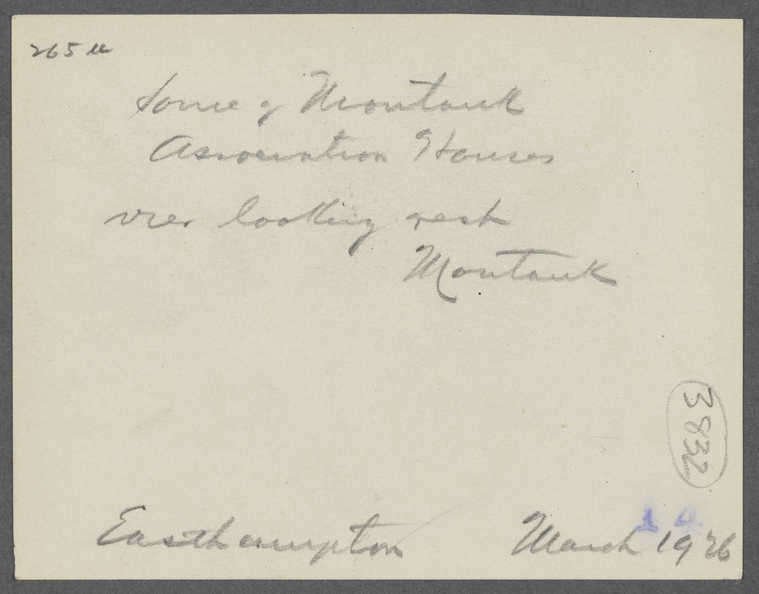 265 u
Some of Montauk
Association Houses
view looking west
Montauk
3832
14
Easthampton March 1926